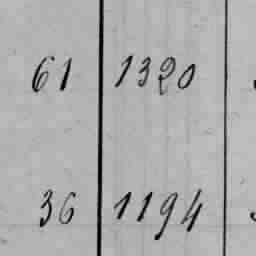 61 1320
36 1194